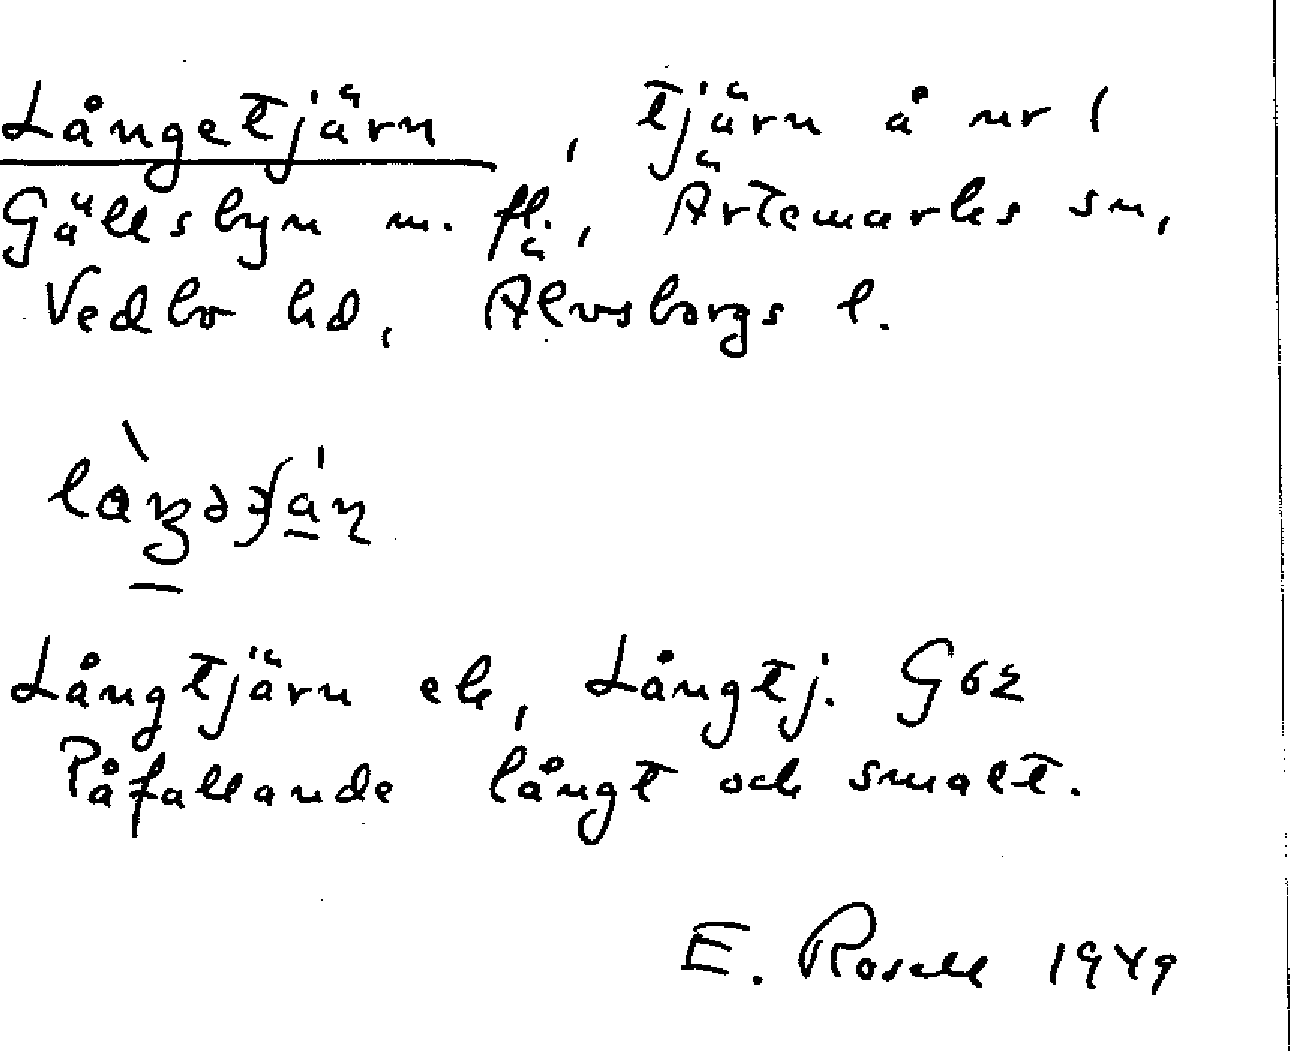 Långetjärn, tjärn å nr 1
Gällsbyn m. fl., Ärtemarks sn,
Vedbo hd, Älvsborgs l.
Långtjärn ek, Långtj. G
Påfallande långt och smalt.
E. Rosell 1949